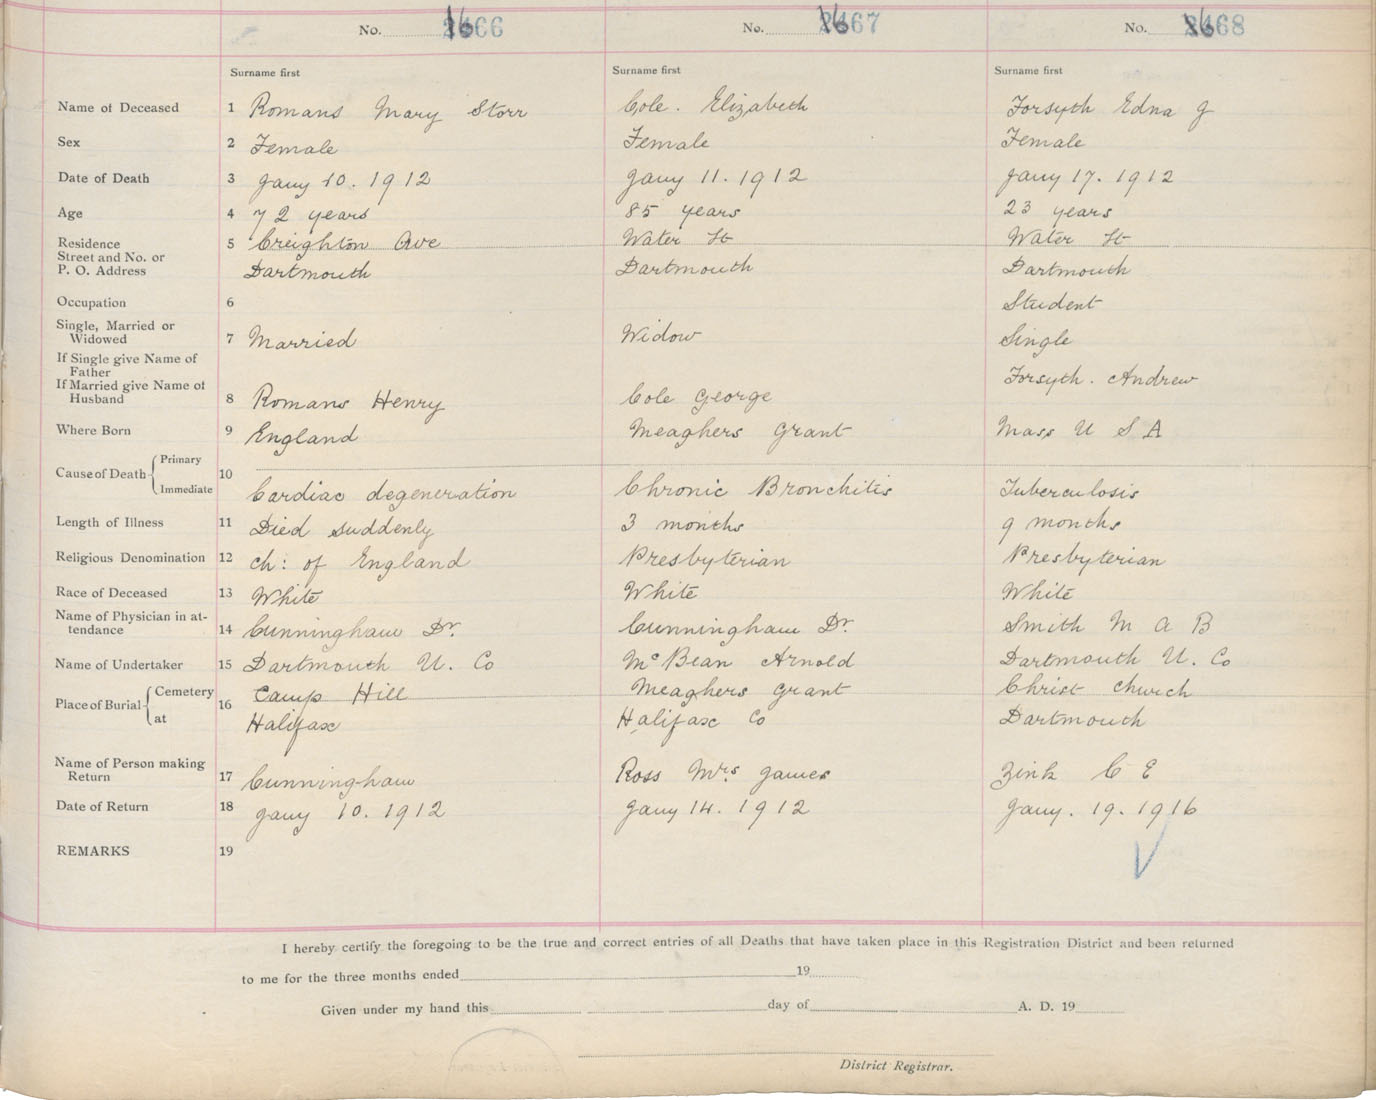 No. 1666 No. 1667 No. 1668
Surname first Surname first Surname first
Name of Deceased 1 Romans Mary Storr Cole. Elizabeth Forsyth Edna J
Sex 2 Female Female Female
Date of Death 3 Jany 10. 1912 Jany 11. 1912 Jany 17. 1912
Age 4 72 years 85 years 23 years
Residence 5 Creighton Ave Water St Water St
Street and No. or
P. O. Address Dartmouth Dartmouth Dartmouth
Occupation 6 Student
Single, Married or
Widowed 7 Married Widow Single
If Single give Name of
Father Forsyth. Andrew
If Married give Name of
Husband 8 Romans Henry Cole George
Where Born 9 England Meaghers Grant Mass U S A
Cause of Death Primary 10
Immediate Cardiac degeneration Chronic Bronchitis Tuberculosis
Length of Illness 11 Died suddenly 3 months 9 months
Religious Denomination 12 Ch: of England Presbyterian Presbyterian
Race of Deceased 13 White White White
Name of Physician in at-
tendance 14 Cunningham Dr. Cunningham Dr. Smith M A B
Name of Undertaker 15 Dartmouth U. Co McBean Arnold Dartmouth U. Co
Place of Burial Cemetery 16 Camp Hill Meaghers Grant Christ Church
at Halifax Halifax Co Dartmouth
Name of Person making
Return 17 Cunningham Ross Mrs James Zink C E
Date of Return 18 Jany 10. 1912 Jany 14. 1912 Jany. 19. 1916
REMARKS 19
I hereby certify the foregoing to be the true and correct entries of all Deaths that have taken place in this Registration District and been returned
to me for the three months ended 19
Given under my hand this day of A. D. 19
District Registrar.